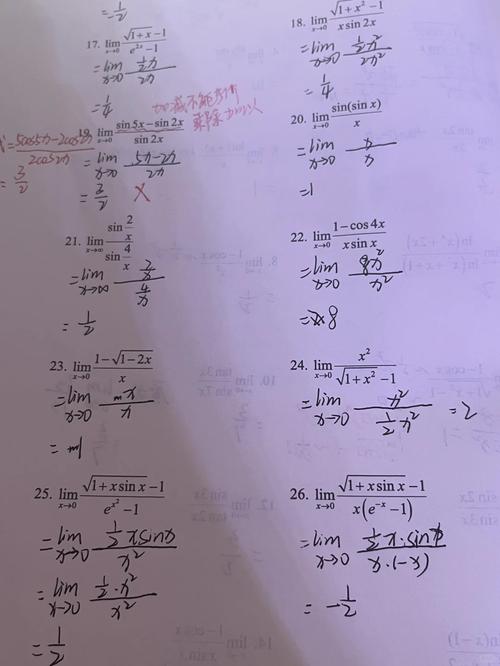 = 1/2
17. lim x→0 (√(1+x) −1)/(e^{2x} −1)
= lim x→0 (1/2 x)/(2x)
= 1/4
18. lim x→0 (√(1+x²) −1)/(x sin 2x)
= lim x→0 (1/2 x²)/(2x²)
= 1/4
加减不能拆开
乘除加以
19. lim x→0 (sin 5x − sin 2x)/(sin 2x)
= lim x→0 (5x−2x)/(2x)
= 3/2 X
(5cos5x−2cos2x)/(2cos2x)
= 3/2
20. lim x→0 sin(sin x)/x
= lim x→0 x/x
=1
21. lim x→∞ (sin 2/x)/(sin 4/x)
= lim x→∞ (2/x)/(4/x)
= 1/2
22. lim x→0 (1−cos 4x)/(x sin x)
= lim x→0 (8x²)/(x²)
= 8
23. lim x→0 (1−√(1−2x))/x
= lim x→0 x/x
= 1
24. lim x→0 x²/(√(1+x²) −1)
= lim x→0 x²/(1/2 x²) = 2
25. lim x→0 (√(1+x sin x) −1)/(e^{x²} −1)
= lim x→0 (1/2 x sinx)/x²
= lim x→0 (1/2 · x²)/x²
= 1/2
26. lim x→0 (√(1+x sin x) −1)/(x(e^{−x} −1))
= lim x→0 (1/2 x · sinx)/(x·(−x))
= −1/2